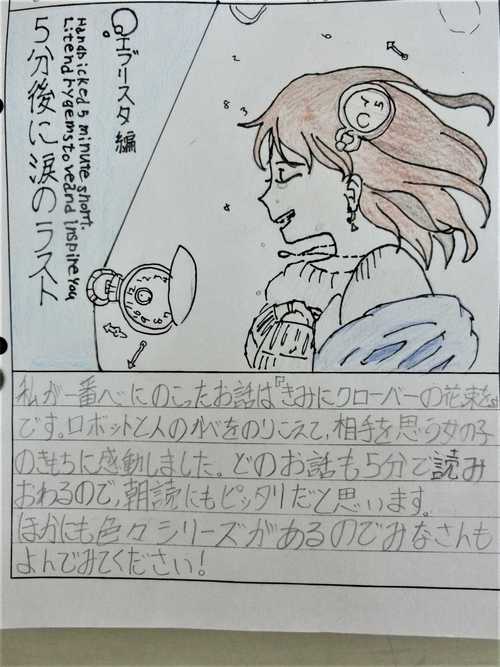 エブリスタ 編
Handbicked 5 minute short.
Litendrygems to ve and inspire you
5分後に涙のラスト
私が一番心にのこったお話は『きみにクローバーの花束を』
です。ロボットと人のかべをのりこえて、相手を思う女の子
のきもちに感動しました。どのお話も5分で読み
おわるので、朝読にもピッタリだと思います。
ほかにも色々シリーズがあるのでみなさんも
よんでみてください!